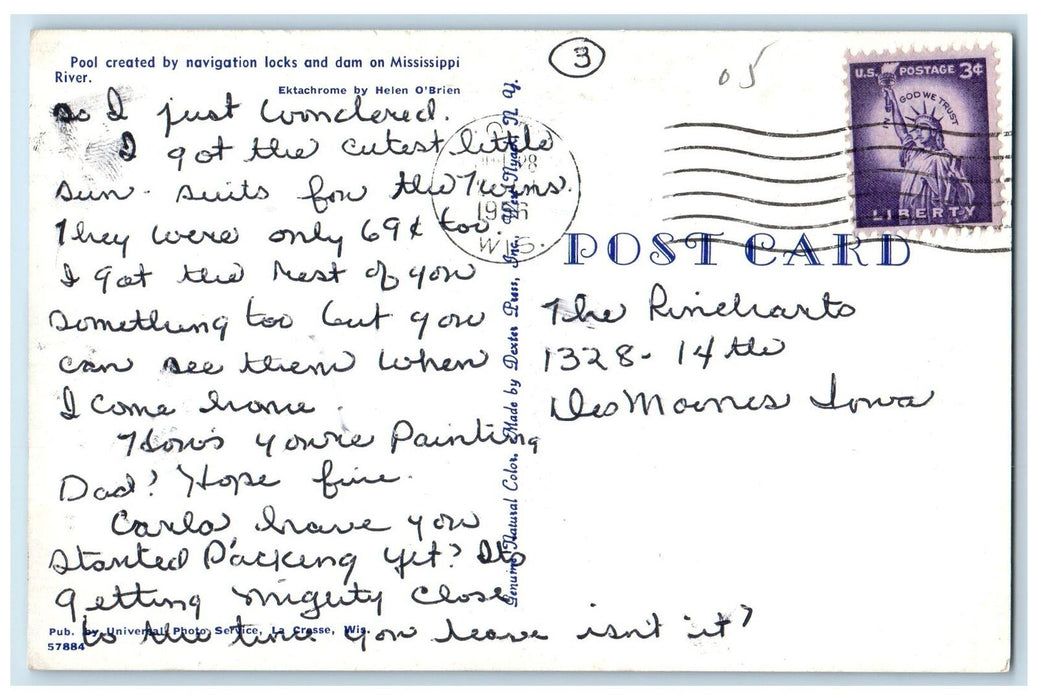 Pool created by navigation locks and dam on Mississippi
River.
Ektachrome by Helen O'Brien
3
05
U.S. POSTAGE 3¢
IN GOD WE TRUST
LIBERTY
28
1956
WIS.
POST CARD
so I just wondered.
I got the cutest little
sun-suits for the Twins.
They were only 69¢ too.
I got the rest of you
something too but you
can see them when
I come home
How's you're Painting
Dad? Hope fine.
Carla, have you
Started Packing yet? Its
getting mighty close
to the time you leave isn't it?
Genuine Natural Color, Made by Dexter Press, Inc., West Nyack, N. Y.
The Rineharts
1328 - 14 th
Des Moines Iowa
Pub. by Universal Photo Service, La Crosse, Wis.
57884